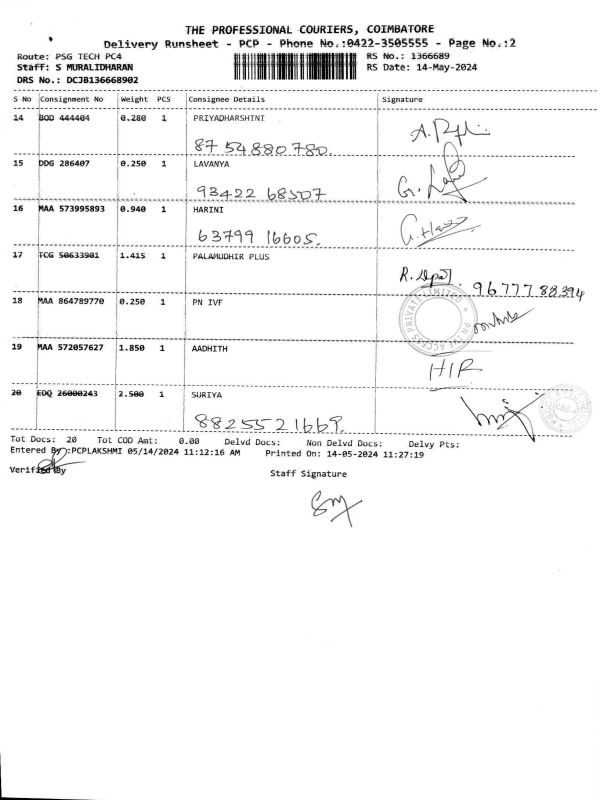 THE PROFESSIONAL COURIERS, COIMBATORE
Delivery Runsheet - PCP - Phone No.:0422-3505555 - Page No.:2
Route: PSG TECH PC4 RS No.: 1366689
Staff: S MURALIDHARAN RS Date: 14-May-2024
DRS No.: DCJB136668902
S No Consignment No Weight PCS Consignee Details Signature
14 BOD 444404 0.280 1 PRIYADHARSHINI
87 54 880 780.
15 DDG 286407 0.250 1 LAVANYA
93422 68507
16 MAA 573995893 0.940 1 HARINI
63799 16605.
17 TCG 50633901 1.415 1 PALAMUDHIR PLUS
96777 88394
18 MAA 864789770 0.250 1 PN IVF
PRIVATE LIMITED
19 MAA 572057627 1.850 1 AADHITH
20 EDQ 26000243 2.500 1 SURIYA
8825521669.
Tot Docs: 20 Tot COD Amt: 0.00 Delvd Docs: Non Delvd Docs: Delvy Pts:
Entered By :PCPLAKSHMI 05/14/2024 11:12:16 AM Printed On: 14-05-2024 11:27:19
Verified By
Staff Signature